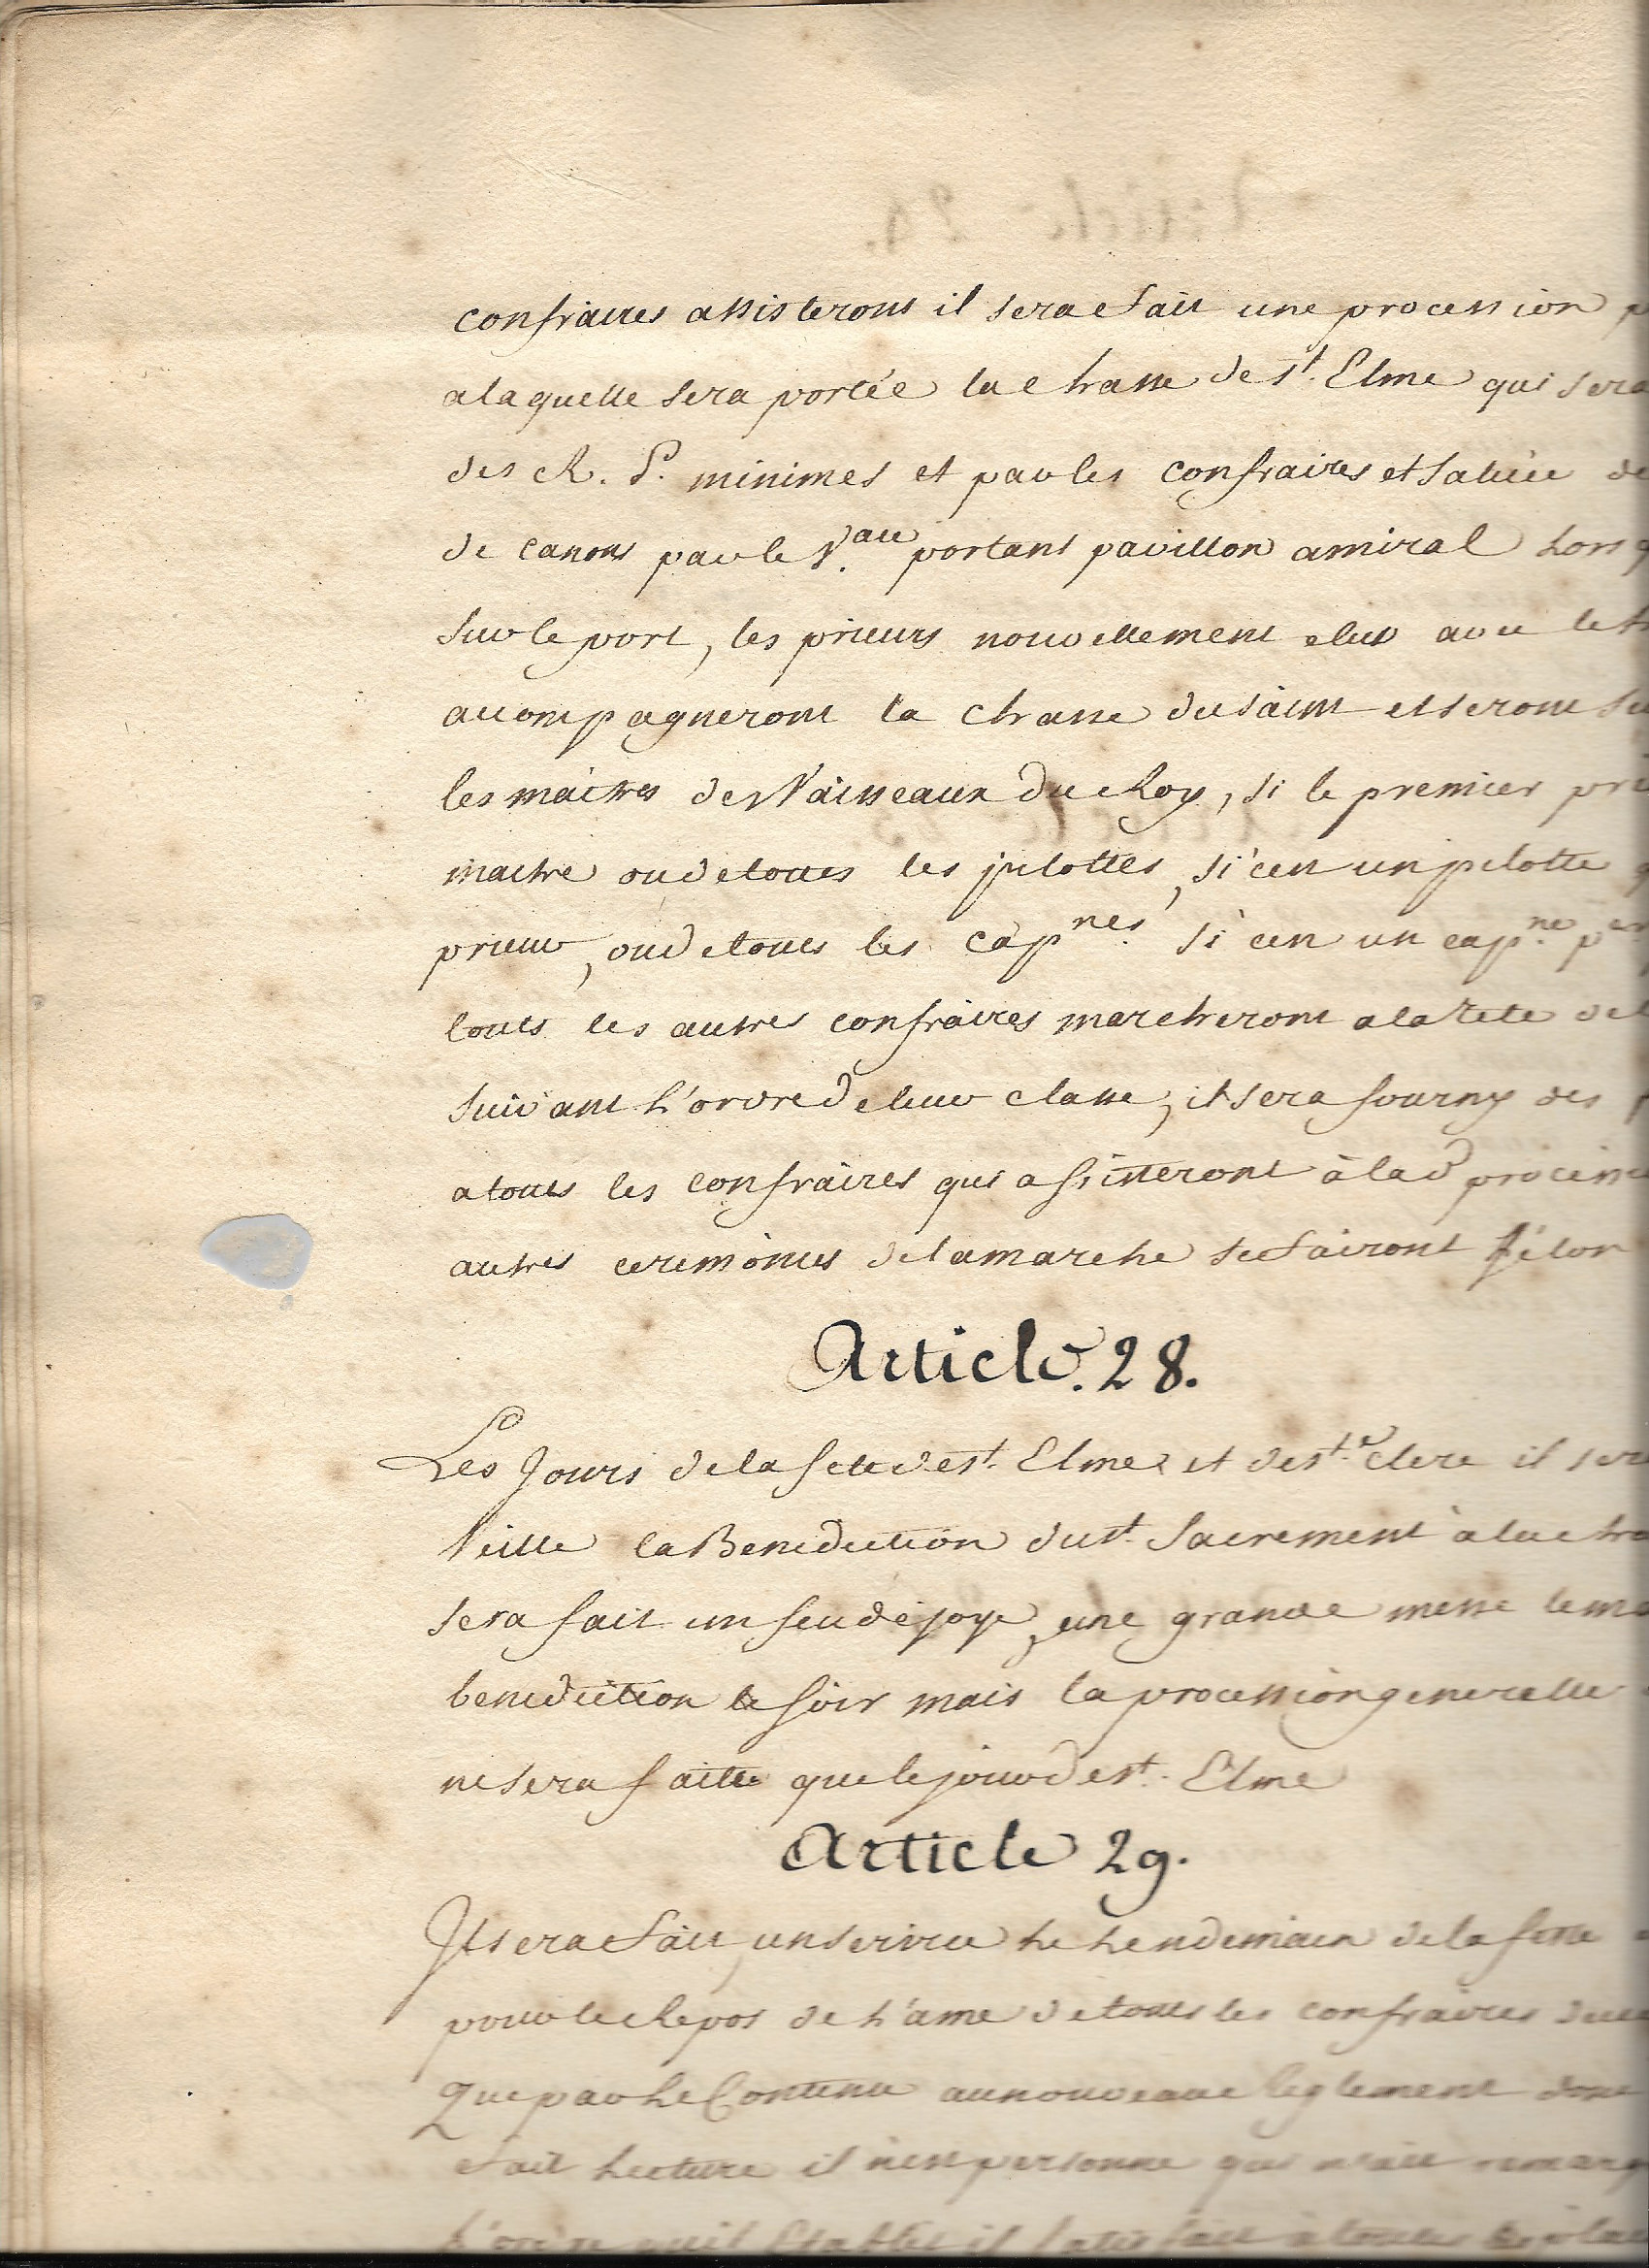 confraires assisteront il sera fait une procession
a laquelle sera portée la chasse de st. Elme qui sera
des R. P. minimes et par les confraires et saluée de
de canons par le V.au portant pavillon amiral lors
sur le port, les prieurs nouvellement elus avec le
accompagneront la chasse du saint et seront
les maitres des Vaisseaux du Roy, si le premier
maitre ou de toues les pilottes, si c'en un pilotte
prieur, ou de toues les cap.nes si c'en un cap.ne
toues les autres confraires marcheront a la tete de
suivant l'ordre de leur classe, il sera fourny des
a toues les confraires qui assisteront à lad
autres ceremonies de la marche se fairont
Article. 28.
Les Jours de la fete de st. Elme et de ste. clere il sera
Veille la Benediction du st. sacrement à la
sera fait un feu de joye, une grande messe le
benediction le soir mais la procession generalle
ne sera faitte que le jour de st. Elme
Article 29.
Il sera fait un service le lendemain de la feste
pour le Repos de l'ame de toues les confraires
Que par le Contenu au nouveau Reglement dont
fait lecture il n'est personne qui n'ait
l'ordre quil Etablit il satisfait à toutes